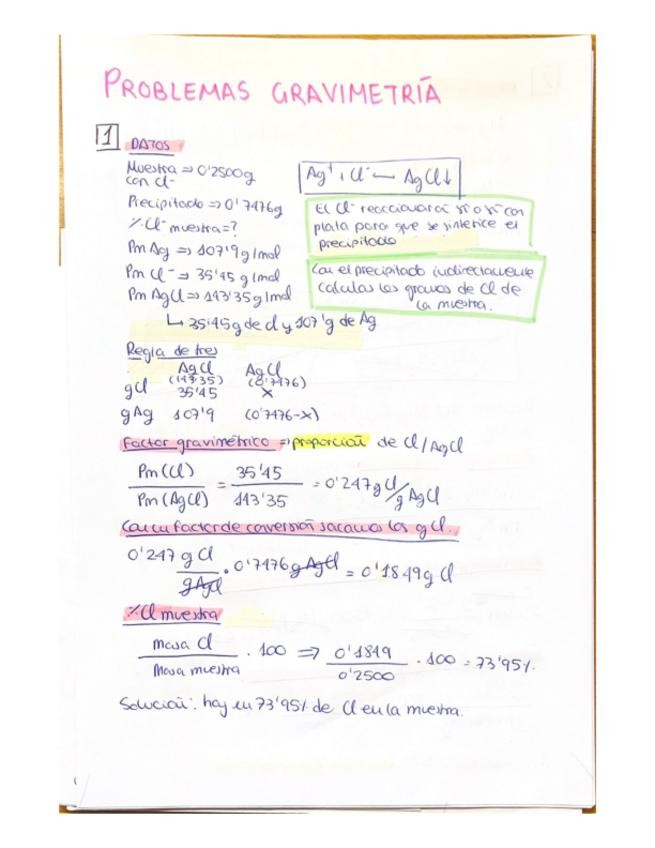 PROBLEMAS GRAVIMETRÍA
1 DATOS
Muestra ⇒ 0'2500g
con Cl⁻
Precipitado ⇒ 0'7476g
% Cl⁻ muestra = ?
Pm Ag ⇒ 107'9 g/mol
Pm Cl⁻ ⇒ 35'45 g/mol
Pm AgCl ⇒ 143'35 g/mol
↳ 35'45g de cl y 107'g de Ag
Ag⁺ + Cl⁻ — AgCl↓
El Cl⁻ reaccionará sí o sí con
plata para que se sintetice el
precipitado
Con el precipitado indirectamente
calculas los gramos de Cl de
la muestra.
Regla de tres
AgCl AgCl
(143'35) (0'7476)
gCl 35'45 X
gAg 107'9 (0'7476-X)
Factor gravimétrico ⇒ proporción de Cl/AgCl
Pm(Cl) / Pm(AgCl) = 35'45 / 143'35 = 0'247 g Cl / g AgCl
Con un factor de conversión sacamos los g Cl.
0'247 g Cl / g AgCl · 0'7476 g AgCl = 0'1849 g Cl
% Cl muestra
Masa Cl / Masa muestra · 100 ⇒ 0'1849 / 0'2500 · 100 = 73'95%
Solución: hay un 73'95% de Cl en la muestra.